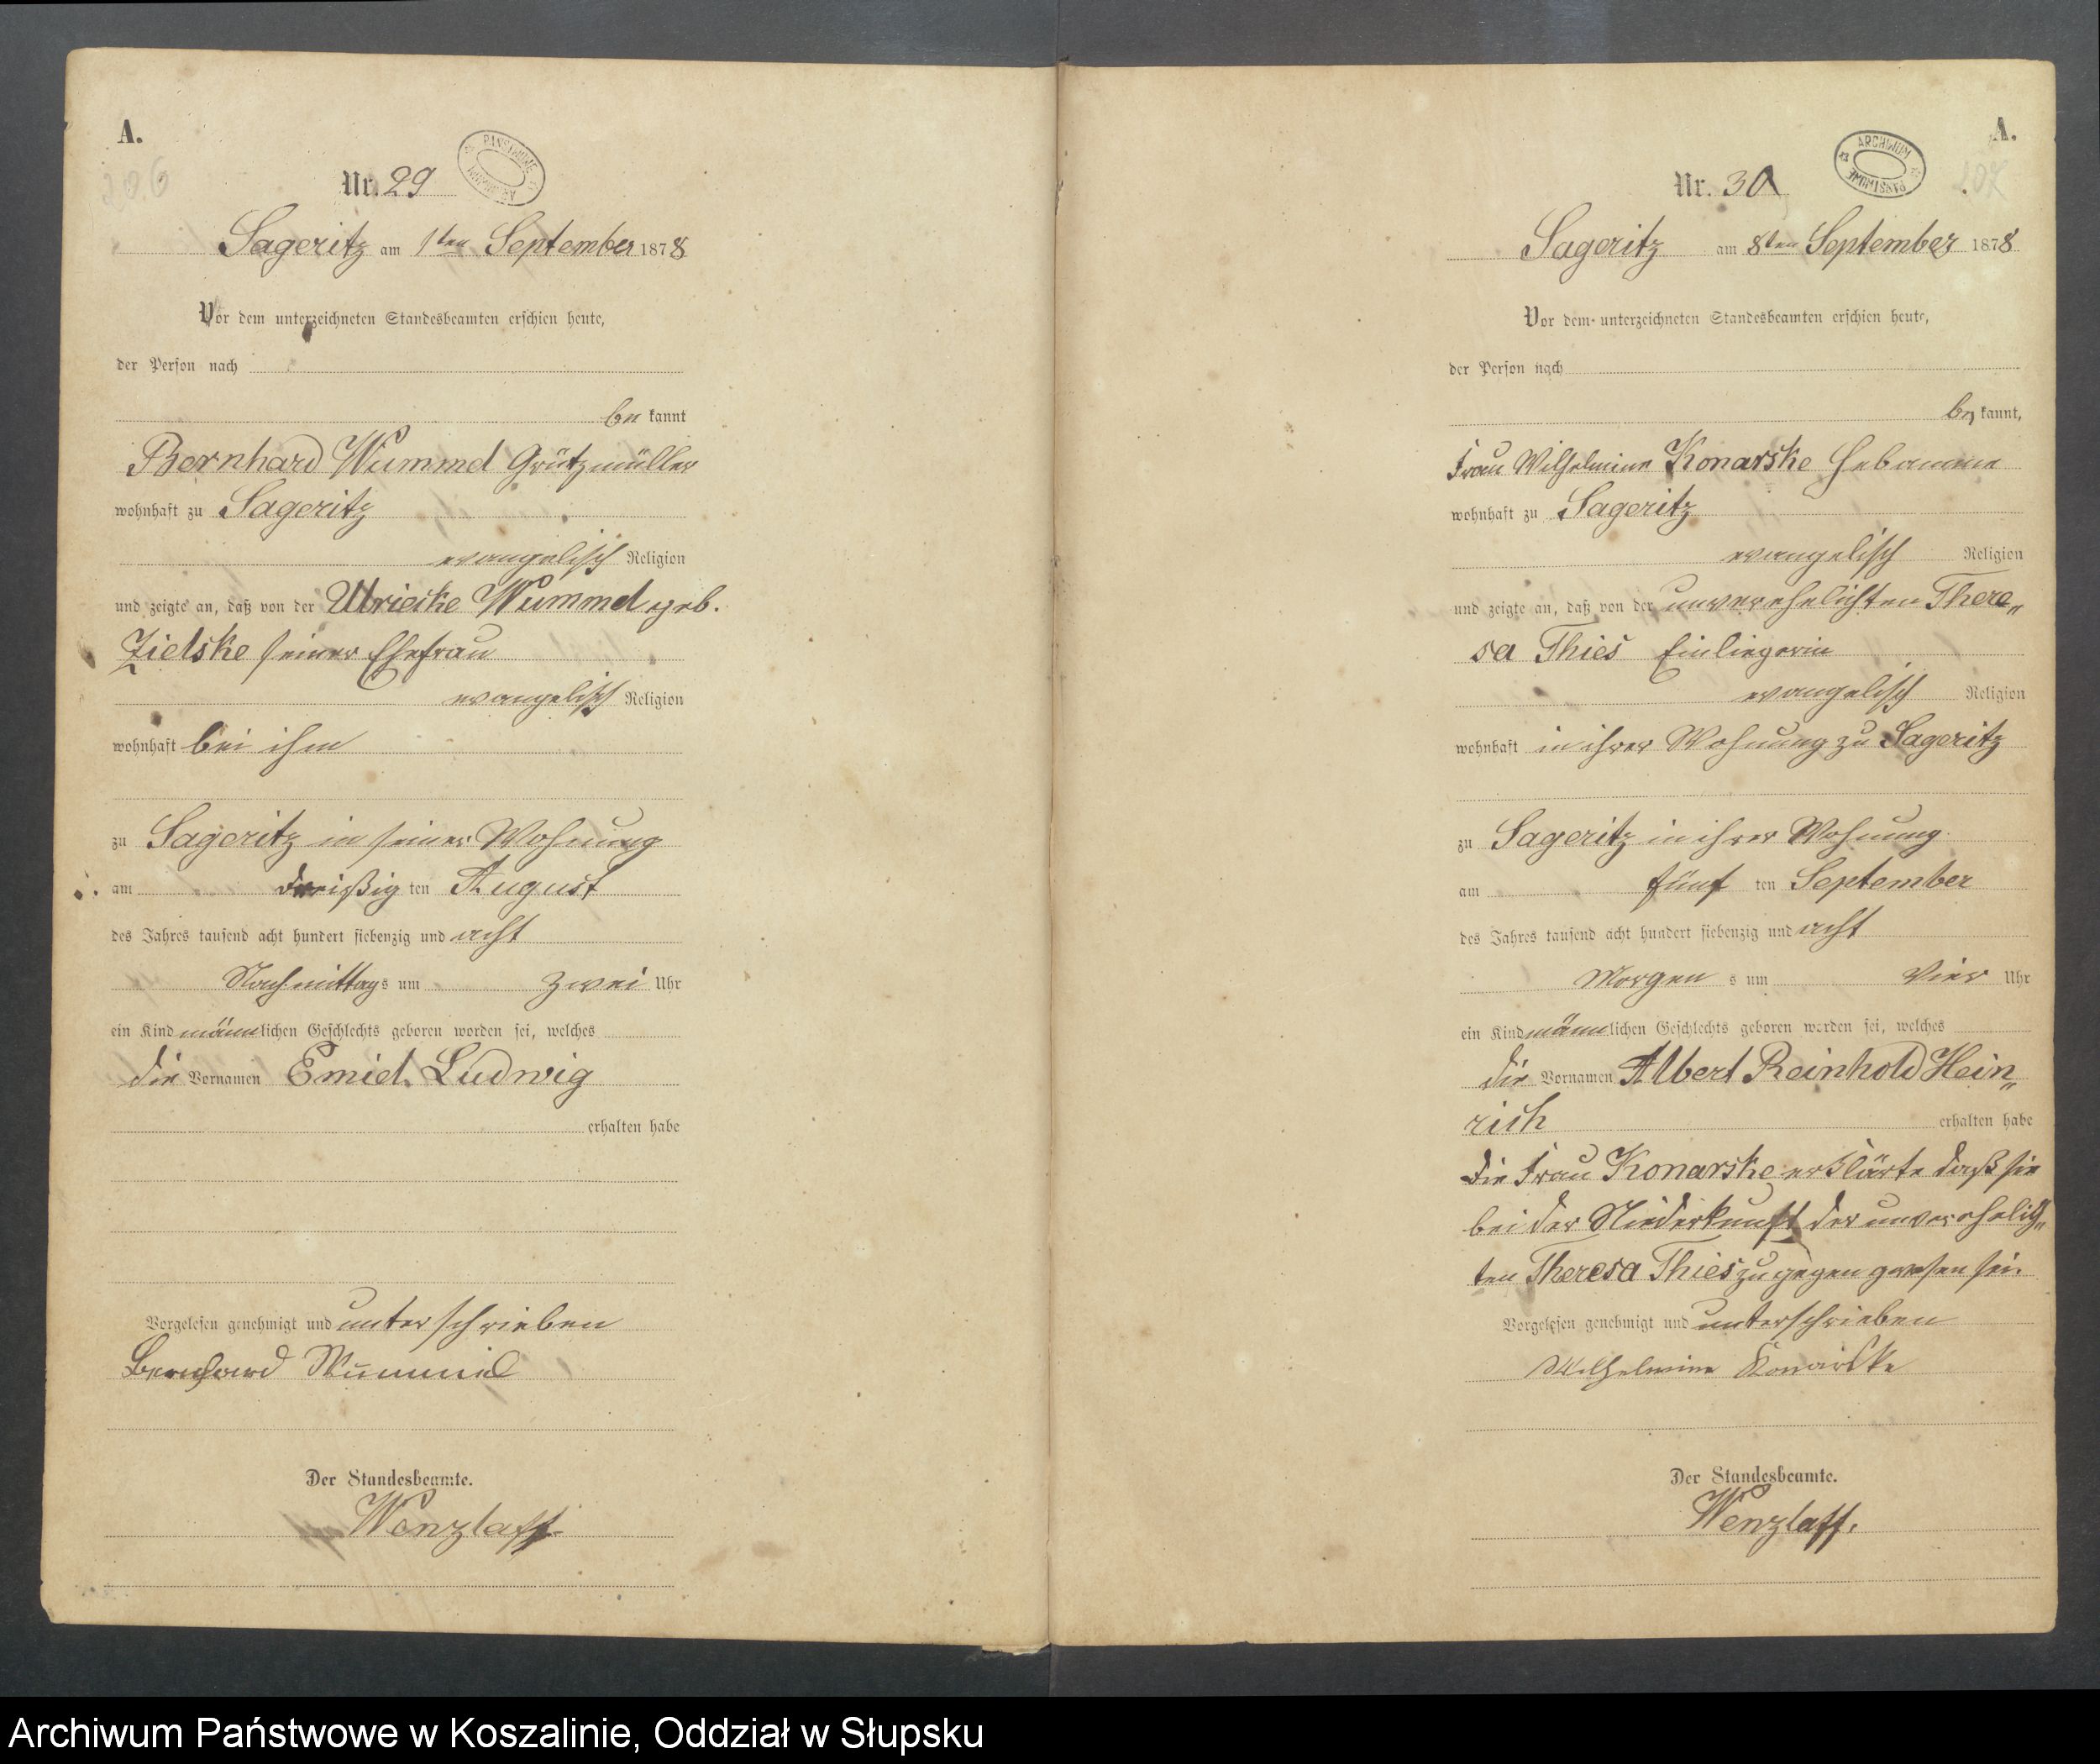 A.
206
Nr. 29
PANSTWOWE ARCHIWUM
Sageritz am 1ten September 1878
Vor dem unterzeichneten Standesbeamten erschien heute,
der Person nach
be kannt
Bernhard Wummel Grützmüller
wohnhaft zu Sageritz
evangelisch Religion
und zeigte an, daß von der Ulriecke Wummel geb.
Zielske seiner Ehefrau
evangelisch Religion
wohnhaft bei ihm
zu Sageritz in seiner Wohnung
am dreißig ten August
des Jahres tausend acht hundert siebenzig und acht
Nachmittags um zwei Uhr
ein Kind männlichen Geschlechts geboren worden sei, welches
die Vornamen Emiel Ludwig
erhalten habe
Vorgelesen genehmigt und unterschrieben
Bernhard Wummel
Der Standesbeamte.
Wenzlaff.
A.
207
Nr. 30
ARCHIWUM PANSTWOWE
Sageritz am 8ten September 1878
Vor dem unterzeichneten Standesbeamten erschien heute,
der Person nach
be kannt,
Frau Wilhelmine Konarske Hebamme
wohnhaft zu Sageritz
evangelisch Religion
und zeigte an, daß von der unverehelichten There„
sa Thies Einliegerin
evangelisch Religion
wohnhaft in ihrer Wohnung zu Sageritz
zu Sageritz in ihrer Wohnung
am fünf ten September
des Jahres tausend acht hundert siebenzig und acht
Morgen s um Vier Uhr
ein Kind männlichen Geschlechts geboren worden sei, welches
die Vornamen Albert Reinhold Hein„
rich erhalten habe
Die Frau Konarske erklärte daß sie
bei der Niederkunft der unverehelich„
ten Theresa Thies zugegen gewesen sei.
Vorgelesen genehmigt und unterschrieben
Wilhelmine Konarske
Der Standesbeamte.
Wenzlaff.
Archiwum Państwowe w Koszalinie, Oddział w Słupsku